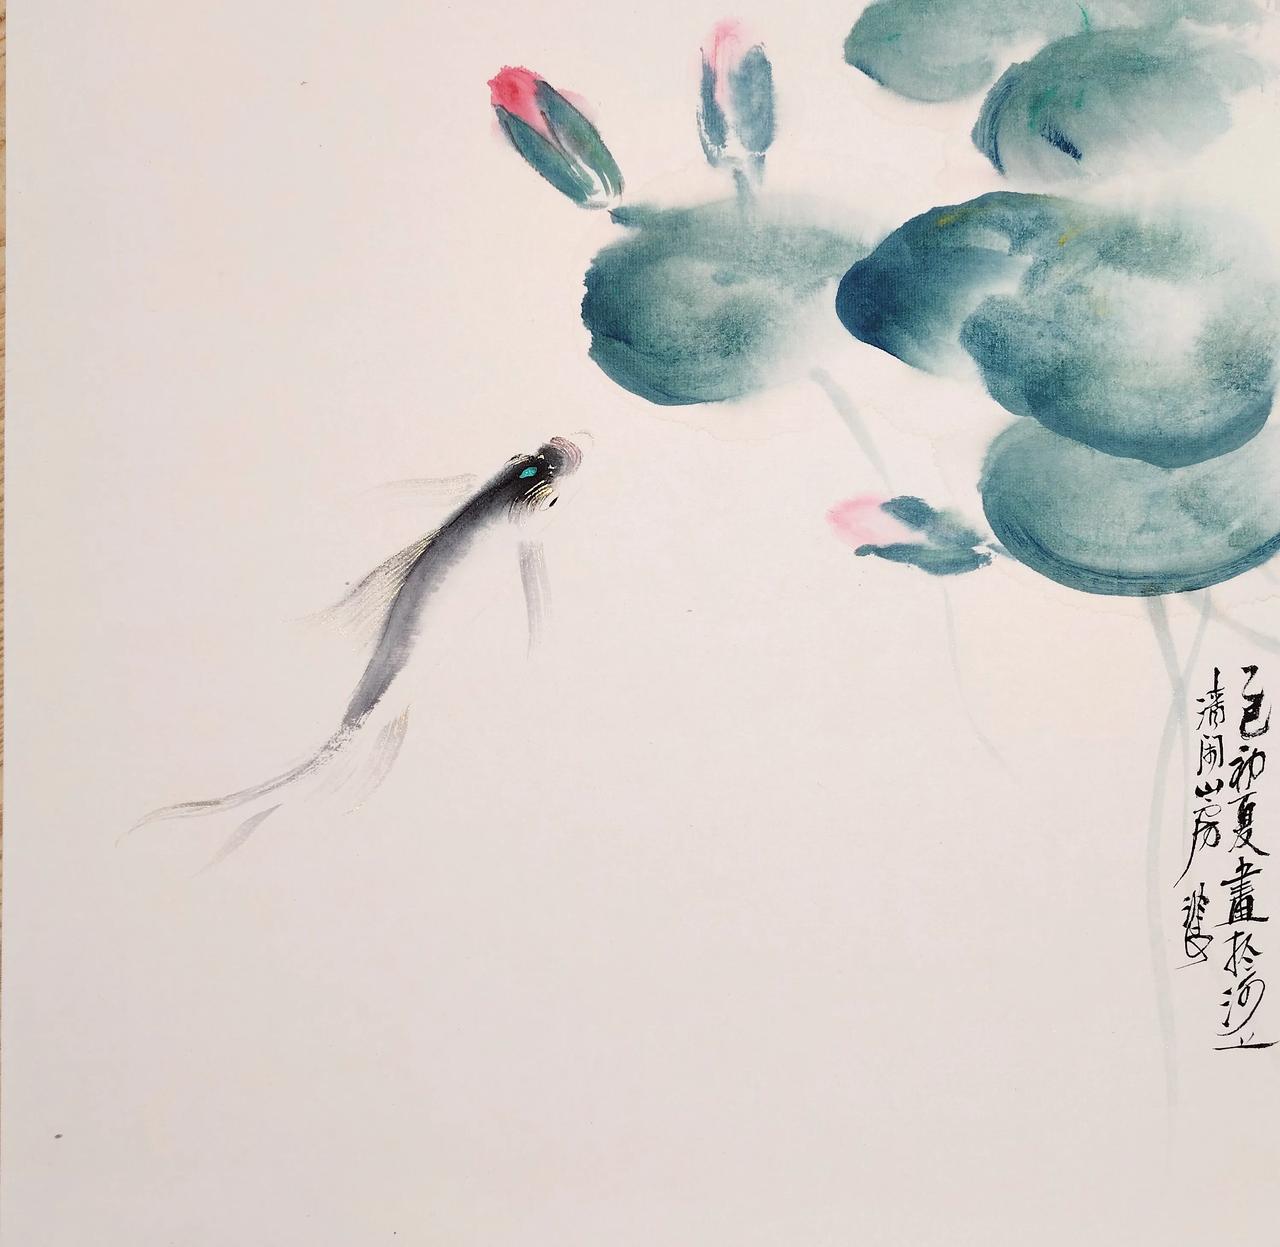 乙巳初夏畫於河上
清閑山房